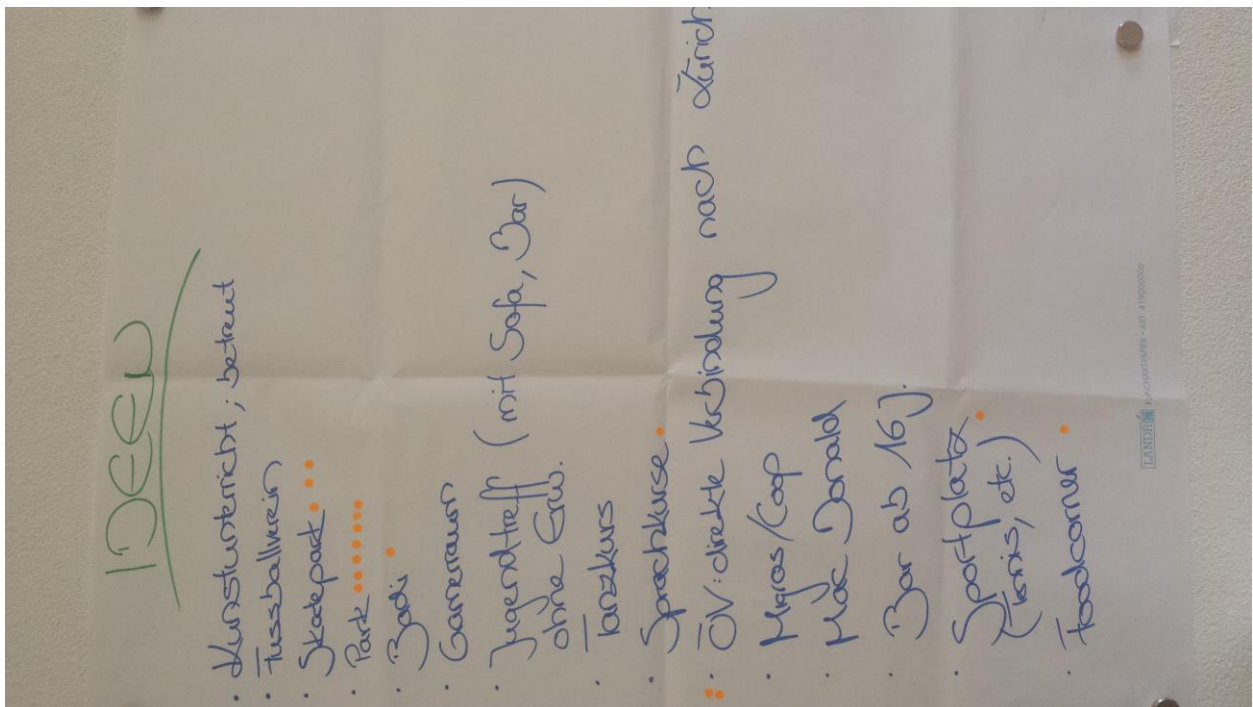 IDEEN
• Kunstunterricht; betreut
• Fussballverein
• Skatepark
• Park
• Badi
• Gamerraum
• Jugendtreff (mit Sofa, Bar)
ohne Erw.
• Tanzkurs
• Sprachkurse
• ÖV: direkte Verbindung nach Zürich
• Migros/Coop
• Mac Donald
• Bar ab 16J.
• Sportplatz
(Tennis, etc.)
• Foodcorner
LANDRÉ FLIPCHARTPAPER • ART. 419000006